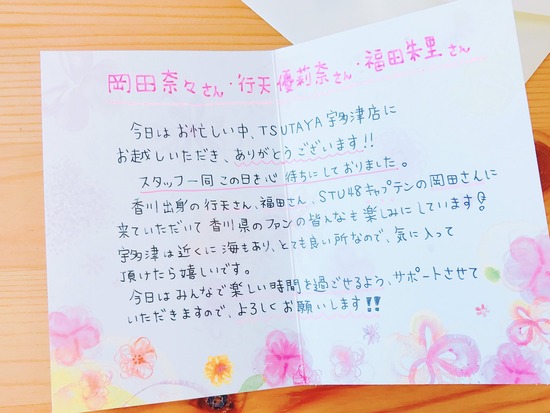 岡田奈々さん・行天優莉奈さん・福田朱里さん
今日はお忙しい中、TSUTAYA宇多津店に
お越しいただき、ありがとうございます!!
スタッフ一同この日を心待ちにしておりました。
香川出身の行天さん、福田さん、STU48キャプテンの岡田さんに
来ていただいて香川県のファンの皆んなも楽しみにしています!
宇多津は近くに海もあり、とても良い所なので、気に入って
頂けたら嬉しいです。
今日はみんなで楽しい時間を過ごせるよう、サポートさせて
いただきますので、よろしくお願いします!!